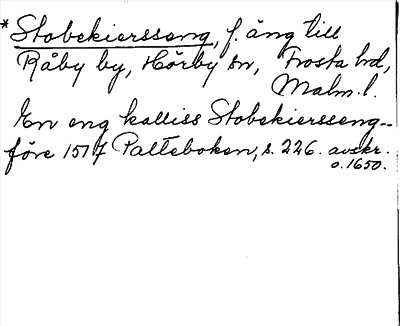 *Stobekiersseng, f. äng till
Råby by, Hörby sn, Frosta hd,
Malm. l.
En eng kalliss Stobekiersseng_
före 1517 Palteboken, s. 226. avskr.
o. 1650.